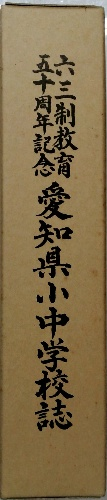 六三制教育
五十周年記念
愛知県小中学校誌